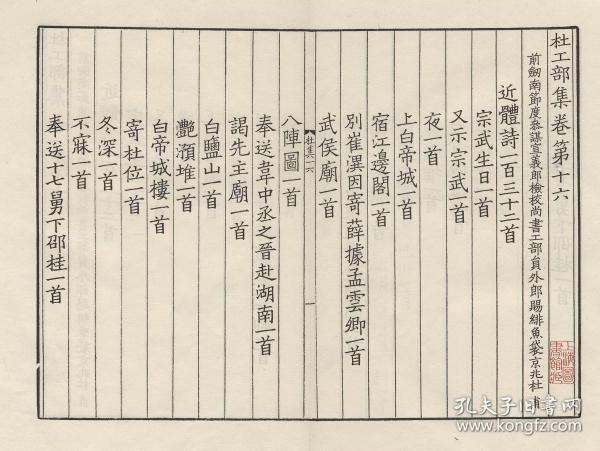 杜工部集卷第十六
前劒南節度參謀宣義郎檢校尚書工部員外郎賜緋魚袋京兆杜甫
近體詩一百三十二首
宗武生日一首
又示宗武一首
夜一首
上白帝城一首
宿江邊閣一首
別崔潩因寄薛據孟雲卿一首
武侯廟一首
杜集十六
一
八陣圖一首
奉送韋中丞之晉赴湖南一首
謁先主廟一首
白鹽山一首
灔澦堆一首
白帝城樓一首
寄杜位一首
冬深一首
不寐一首
奉送十七舅下邵桂一首
上海圖書館藏
孔夫子旧书网
www.kongfz.com